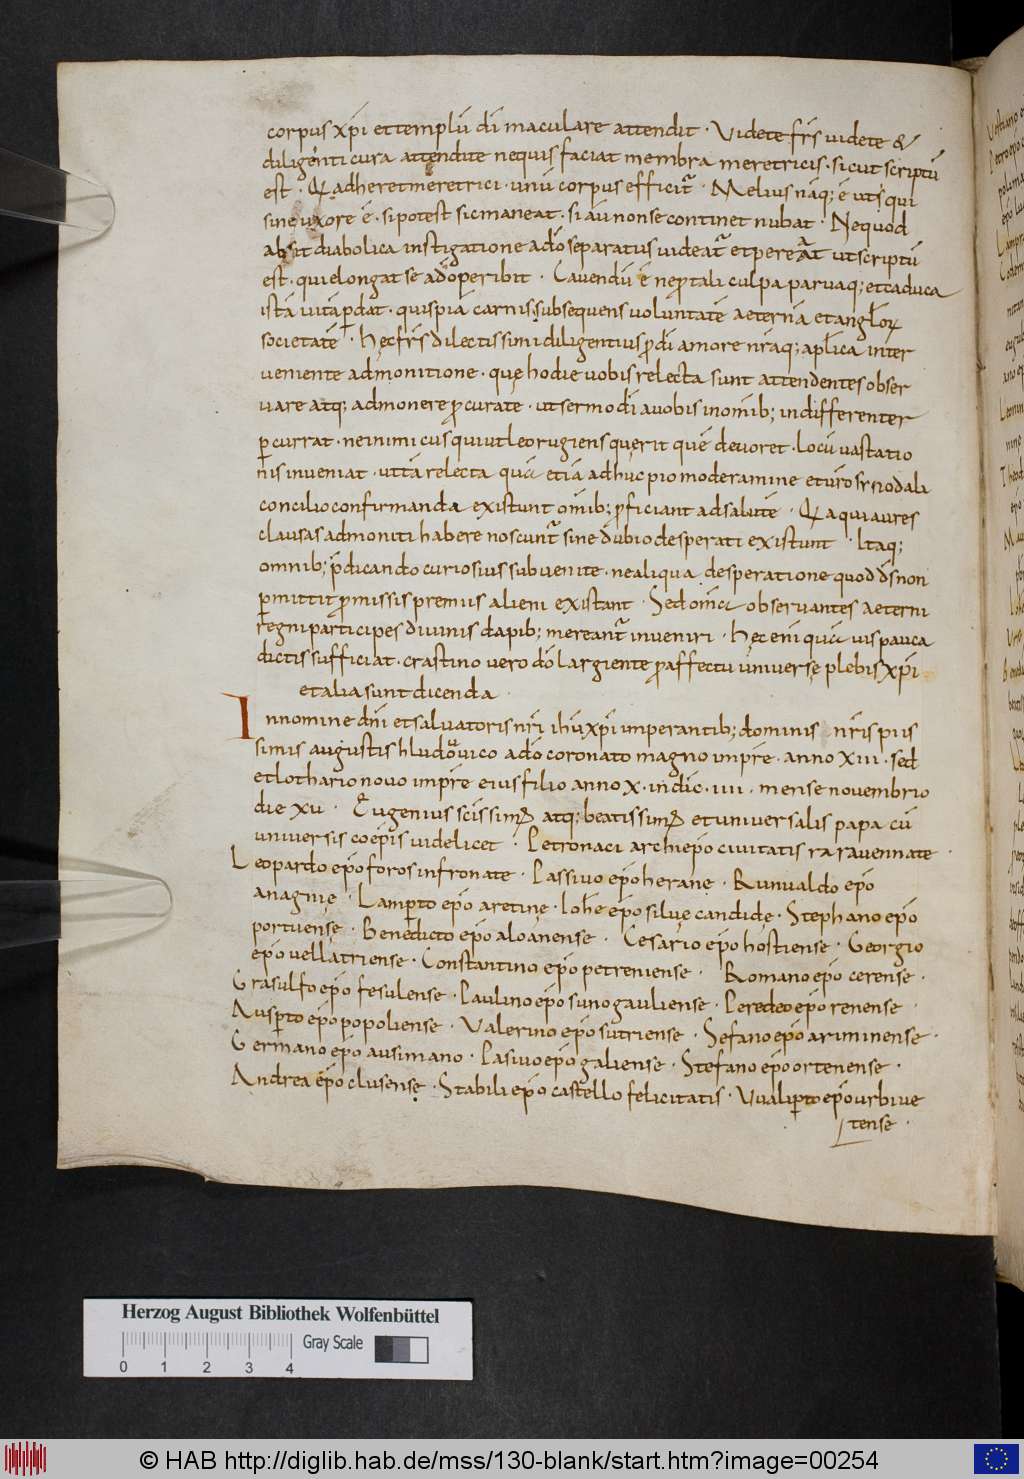 corpus xp̄i et templū dī maculare attendit · Videte fr̄s uidete &
diligenti cura attendite nequis faciat membra meretricis · sicut scriptū
est · Qui adheret meretrici · unū corpus efficit̄ · Melius nāq; ē ut si qui
sine uxore ē · si potest sic maneat · si aū non se continet nubat · Ne quod
absit diabolica instigatione a dō separatus uideat̄ et pereat ut scriptū
est · qui elongat se a dō peribit · Cauendū ē ne ꝓ tali culpa paruaq; et caduca
istā uitā ꝑdat · quispiā carnis subsequens uoluntatē aeternā et angl̄oꝝ
societatē · Hęc fr̄s dilectissimi diligentius ꝓ dī amore nr̄aq; apl̄ica inter
ueniente admonitione · quę hodie uobis relecta sunt attendentes obser
uare atq; admonere ꝓcurate · ut sermo dī a uobis in om̄ib; indifferenter
ꝑcurrat · ne inimicus qui ut leo rugiens querit quē deuoret · locū uastatio
nis inueniat · ut tā relecta quā etiā adhuc pio moderamine et ur̄o synodali
concilio confirmanda existunt om̄ib; ꝓficiant ad salutē · Quia qui aures
clausas admoniti habere noscunt̄ sine dubio desperati existunt · Itaq;
omnib; p̄dicando curiosius subuenite · ne aliqua desperatione quod dŝ non
ꝑmittit ꝓmissis premiis alieni existant · Sed om̄ia obseruantes aeterni
regni participes diuinis dapib; mereant̄ inueniri · Hęc eni quia uis pauca
dictis sufficiat · crastino uero dō largiente ꝓ affectu uniuersę plebis xp̄i
et alia sunt dicenda ·
In nomine dn̄i et saluatoris nr̄i ihū xp̄i imperantib; dominis nr̄is piis
simis augustis hludouuico a dō coronato magno impr̄e · anno XIII · sed
et lothario nouo impr̄e eius filio anno X · indic · IIII · mense nouembrio
die XV · Eugenius scissim; atq; beatissim; et uniuersalis papa cū
uniuersis coep̄is uidelicet · Petronaci archiep̄o ciuitatis ra rauennate ·
Leopardo ep̄o foros infronate · Passiuo ep̄o heranę · Runualdo ep̄o
anagnię · Lamꝑto ep̄o aretinę · Ioh̄e ep̄o siluę candidę · Stephano ep̄o
portuense · Benedicto ep̄o aloanense · Cesario ep̄o hostiense · Georgio
ep̄o uellatriense · Constantino ep̄o petreniense · Romano ep̄o cerense ·
Grasulfo ep̄o fesulense · Paulino ep̄o sunogauliense · Peredeo ep̄o renense ·
Ausꝑto ep̄o popoliense · Valerino ep̄o sutriense · Sefano ep̄o ariminense ·
Germano ep̄o ausimano · Pasiuo ep̄o galiense · Stefano ep̄o ortenense ·
Andrea ep̄o clusensę · Stabili ep̄o castello felicitatis · Vualiꝑto ep̄o urbiue
tense ·
Herzog August Bibliothek Wolfenbüttel
Gray Scale
0 1 2 3 4
© HAB http://diglib.hab.de/mss/130-blank/start.htm?image=00254